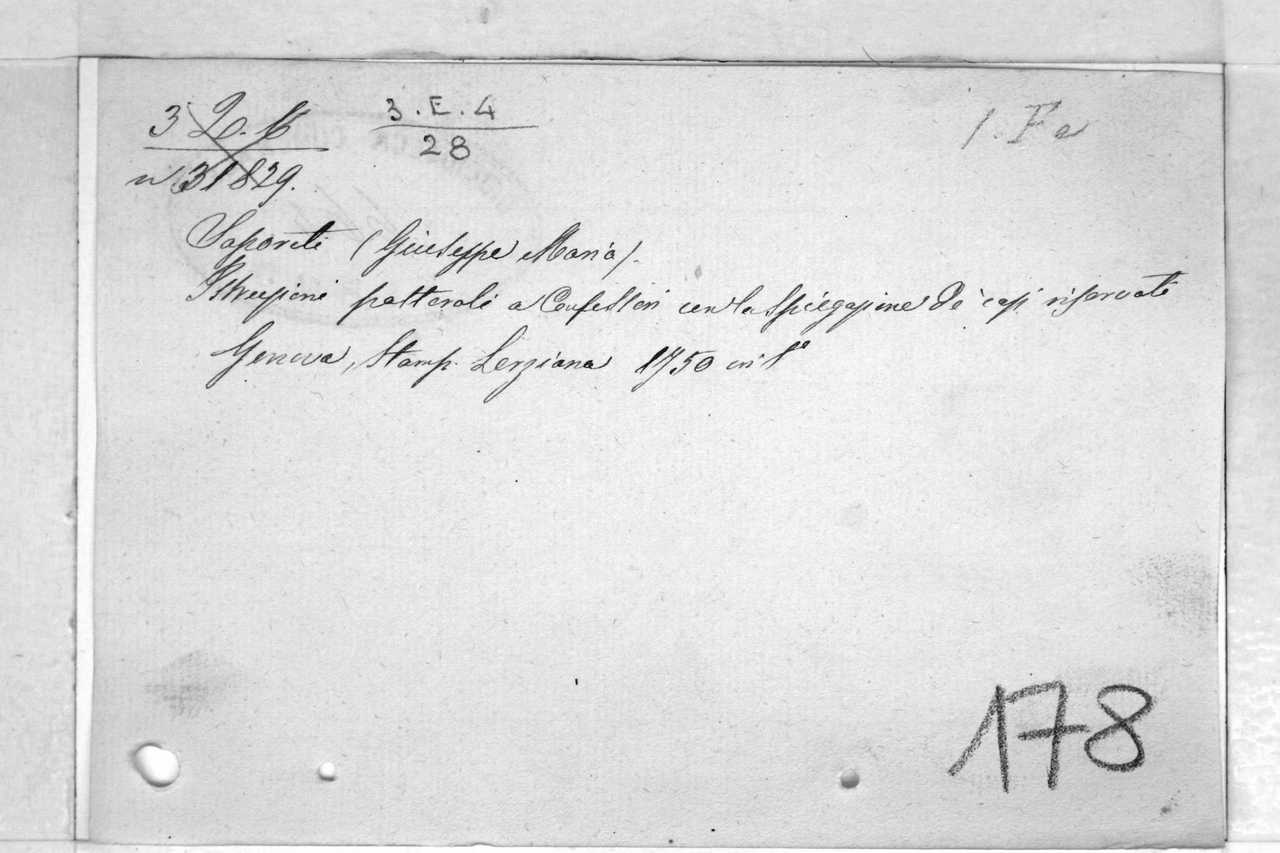 3 D. 6 3.E.4
n 31829. 28
1. Fa
Saporiti (Giuseppe Maria).
Istruzioni pastorali a Confessori con la Spiegazione de' casi riservati
Genova, Stamp. Lerziana 1750 in
178